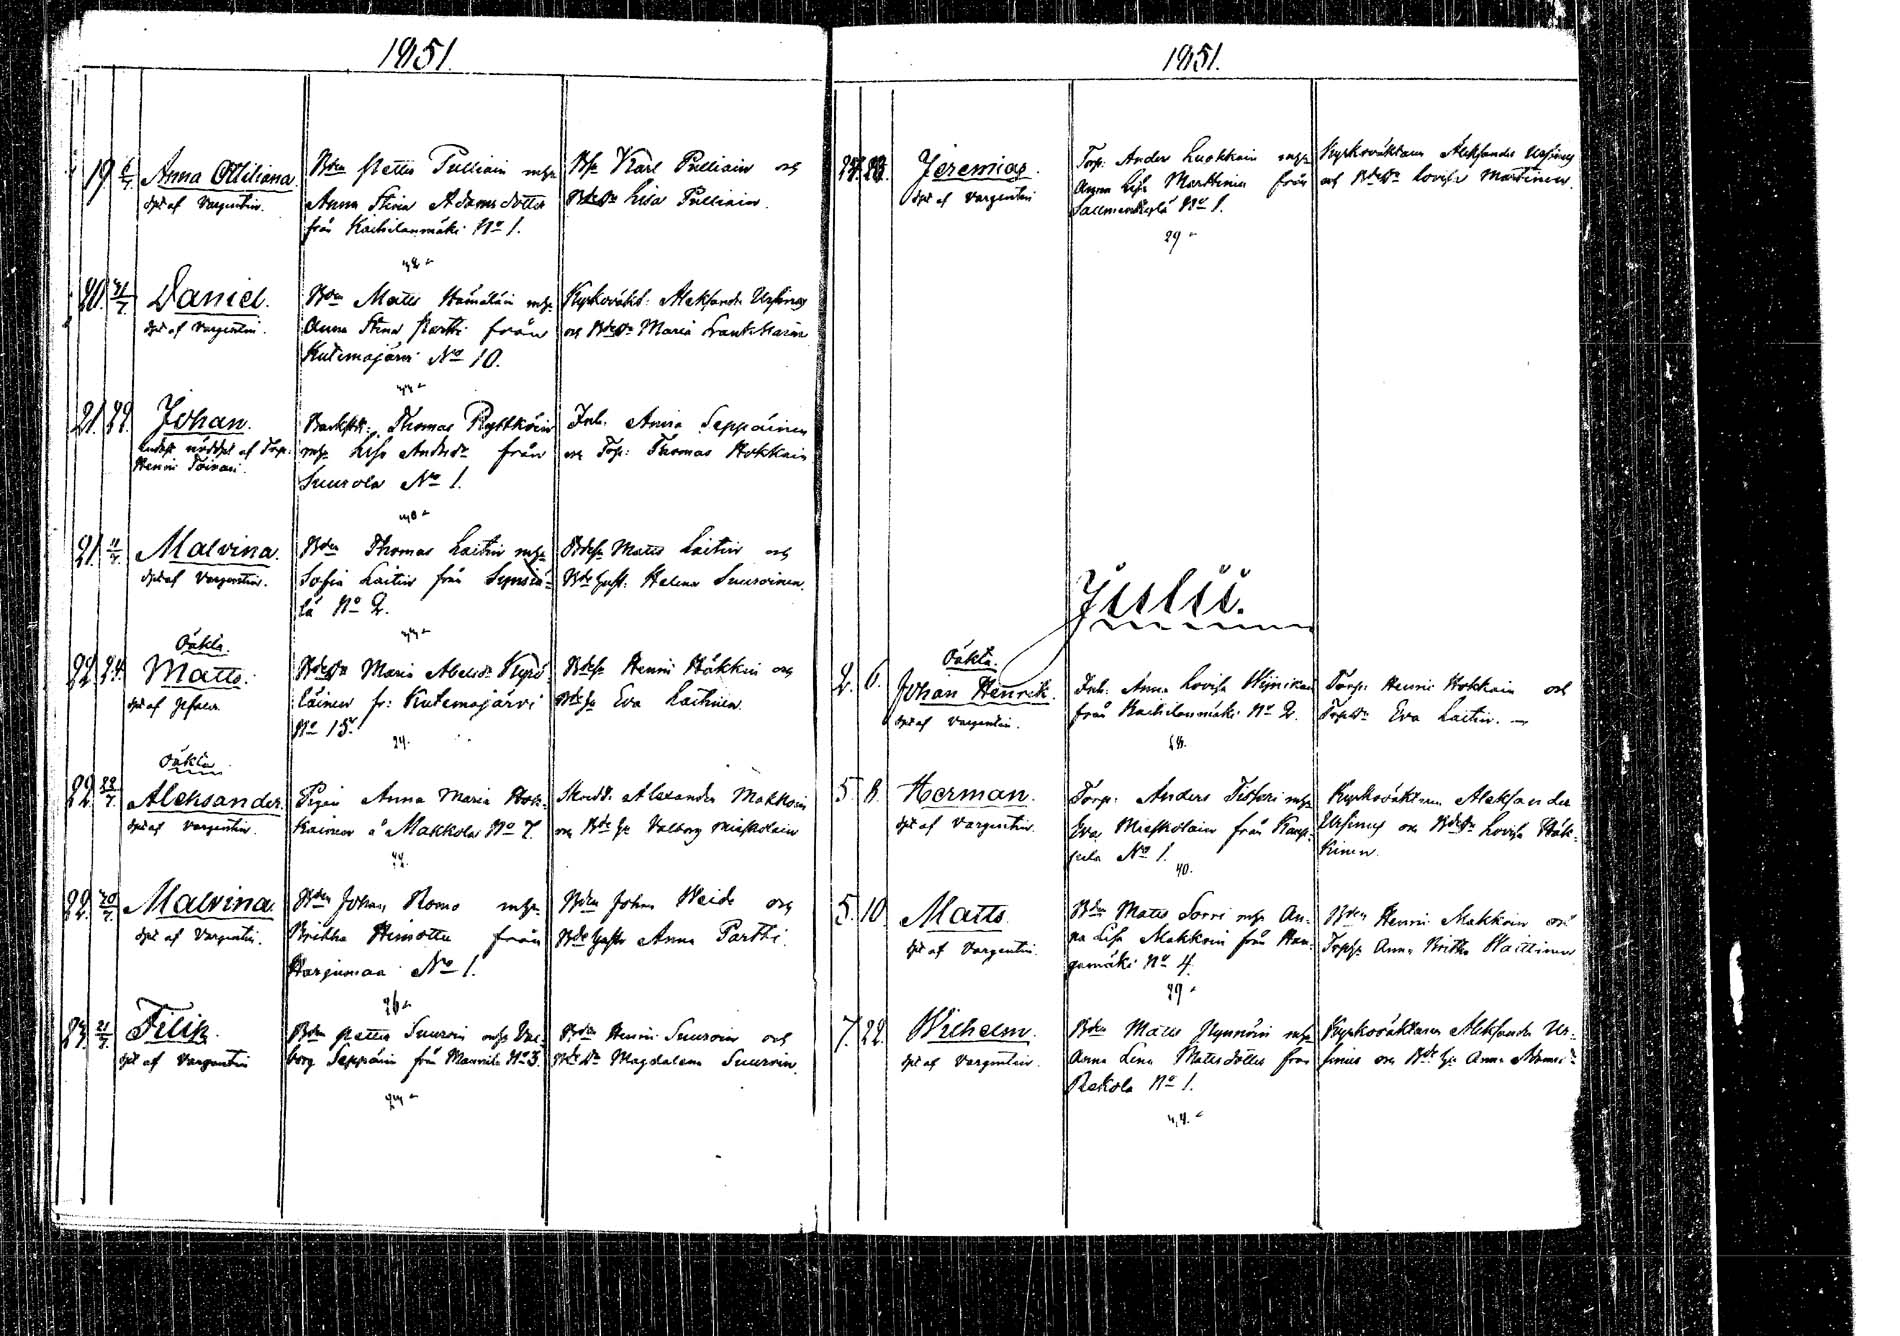 1851.
19. 6/7 Anna Ottiliana.
dpt af Vargentin.
Bdn Petter Pulliain mhu
Anna Stina Adamsdotter
från Kaihilanmäki No 1.
32
Bs. Karl Pulliain och
Bdedr Lisa Pulliain.
20. Daniel.
dpt af Vargentin.
Bdn Matts Hämäläin mhu
Anna Stina Partti från
Kutemajärvi No 10.
33
Kyrkoväkt: Aleksander Ursinus
och Bdedr Maria
21. 29. Johan.
nöddpt af Torp:
Henrik Toivari.
Thomas Pyttköin
mhu Lisa Andrsdr från
Suurola No 1.
30
Inh. Anna Seppäinen
och Torp: Thomas Hokkain
21. 11/7 Malvina.
dpt af Vargentin.
Bdn Thomas Laitin mhu
Sofia Laitin från Synsiä-
lä No 2.
33
Bdes. Matts Laitin och
Bde hust: Helena Suuroinen.
Oäkta.
22. 24. Matts.
dpt af
Bdedr Maria Abelsdr Kypö-
läinen fr: Kutemajärvi
No 15.
24.
Bdes. Henrik Häkkin och
Bde hu Eva Laitinen.
Oäkta
22. Aleksander.
dpt af Vargentin.
Pigan Anna Maria Hok-
kainen å Makkola No 7.
22.
Alexander Makkoin
och Bde hu Valborg Mieskolain
22. 20/7 Malvina.
dpt af Vargentin.
Bdn Johan Romo mhu
Britha Himottu från
Harjumaa No 1.
26
Bdn Johan Weide och
Bde hustr Anna Partti.
23. 21/7 Filip.
dpt af Vargentin
Bdn Petter Suuroin mhu Val-
borg Seppäin från Mannila No 3.
23
Bdn Henrik Suuroin och
Bdedr Magdalena Suuroin.
1851.
Jeremias.
dpt af Vargentin
Torp: Anders Luokkain mhu
Anna Lisa Marttinen från
Sallmenkylä No 1.
29
Kyrkoväktaren Aleksander Ursinus
och Bdedr Lovisa Martinen.
Julii.
Oäkta.
2. 6. Johan Henrik.
dpt af Vargentin.
Inh. Anna Lovisa Wijnikain
från Kaihilanmäki No 2.
Torp: Henrik Hokkain och
Torpdr Eva Laitin.
5. 8. Herman.
dpt af Vargentin.
Torp: Anders Tissari mhu
Eva Mieskolain från Kans-
sula No 1.
40.
Kyrkoväktaren Aleksander
Ursinus och Bdedr Lovisa Häk-
kinen.
5. 10. Matts.
dpt af Vargentin.
Bdn Matts Sorri mhu An-
na Lisa Makkoin från Han-
gamäki No 4.
29
Bdn Henrik Makkoin och
Torphu Anna Britha Waittinen
7. 22. Wilhelm.
dpt af Vargentin.
Bdn Matts Hynnöin mhu
Anna Lena Mattsdotter från
Pekola No 1.
34.
Kyrkoväktaren Aleksander Ur-
sinus och Bde hu Anna